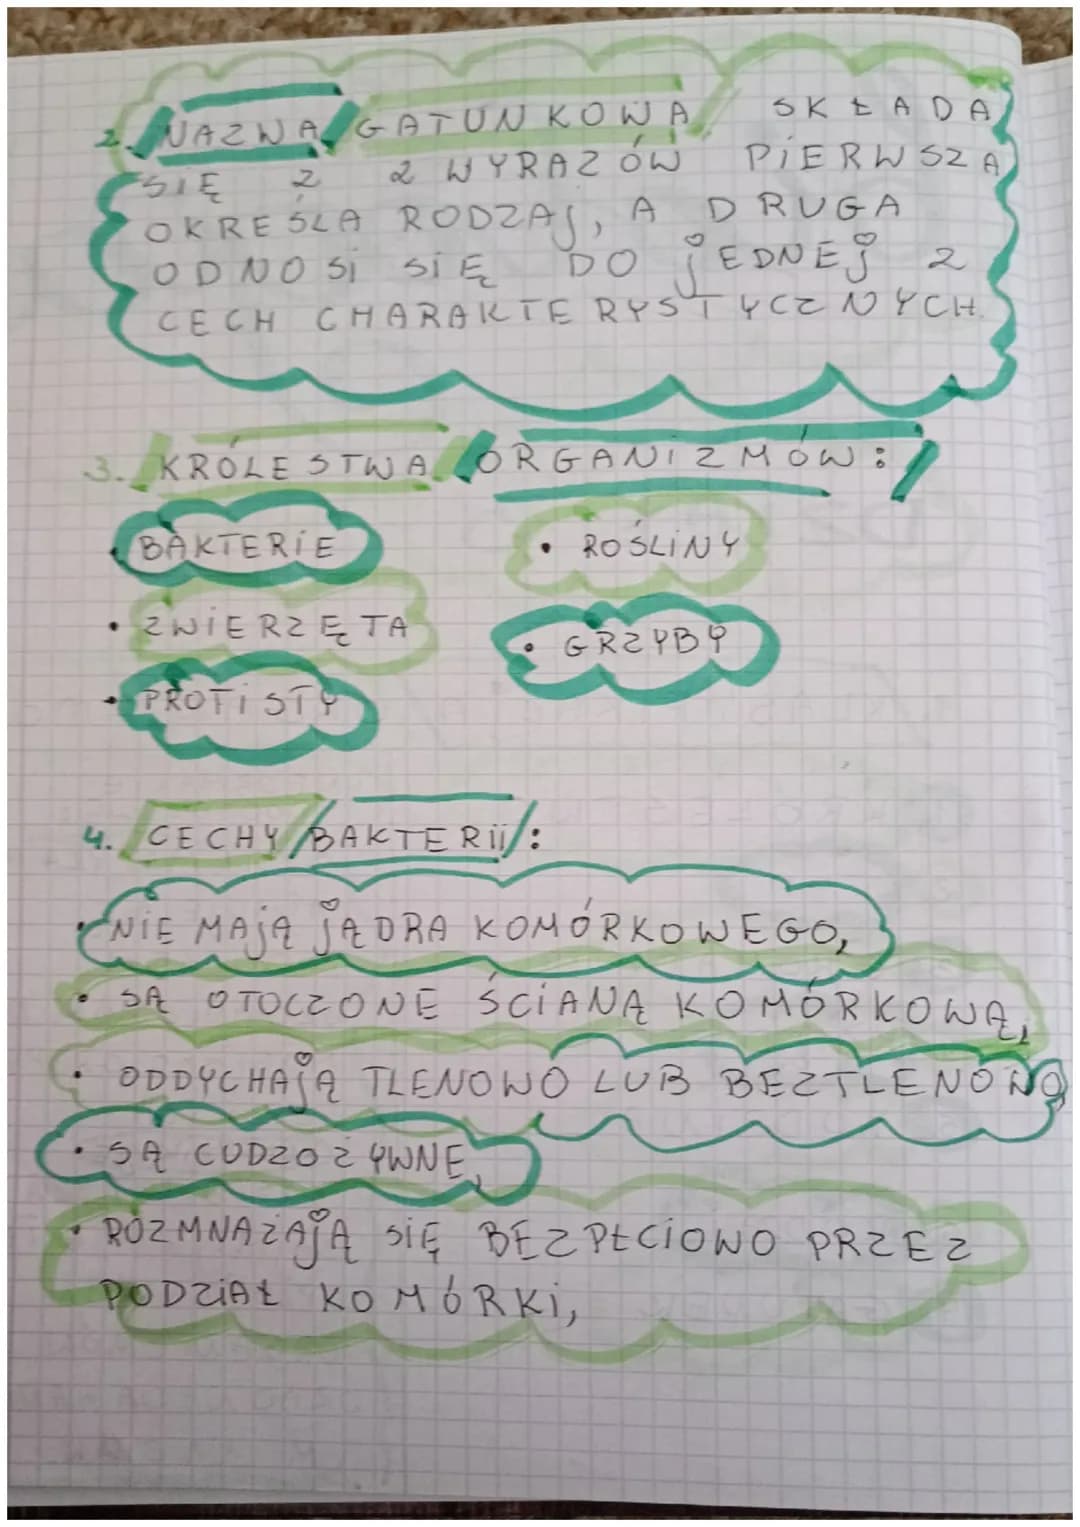 2. NAZWA GATUNKOWA SKŁADA
SIĘ Z 2 WYRAZÓW PIERWSZA
OKREŚLA RODZAJ, A DRUGA
ODNOSI SIĘ DO JEDNEJ Z
CECH CHARAKTERYSTYCZNYCH.
3. KRÓLESTWA ORGANIZMÓW:
• BAKTERIE
• ROŚLINY
• ZWIERZĘTA
• GRZYBY
• PROTISTY
4. CECHY BAKTERII:
• NIE MAJĄ JĄDRA KOMÓRKOWEGO,
• SĄ OTOCZONE ŚCIANĄ KOMÓRKOWĄ,
• ODDYCHAJĄ TLENOWO LUB BEZTLENOWO,
• SĄ CUDZOŻYWNE,
• ROZMNAŻAJĄ SIĘ BEZPŁCIOWO PRZEZ
PODZIAŁ KOMÓRKI,